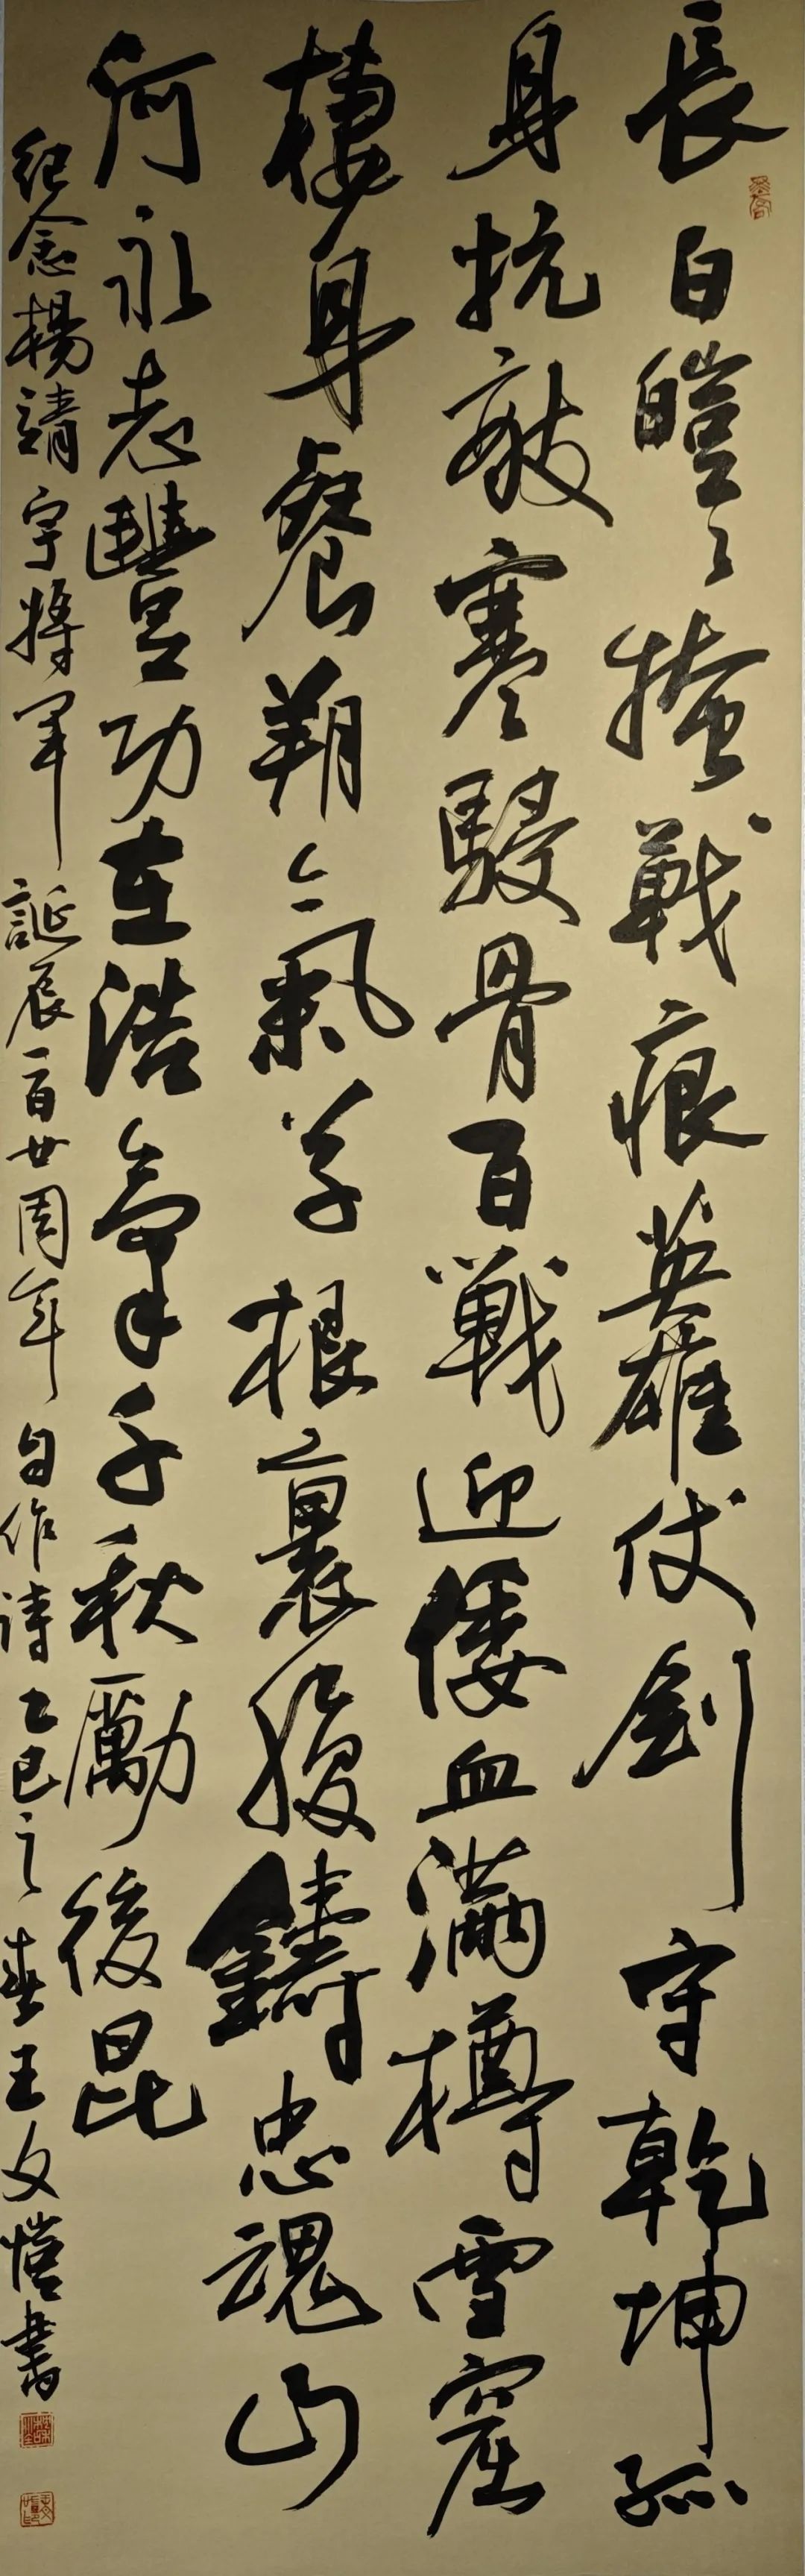 長白皚〻掩戰痕英雄仗劍守乾坤孤
身抗敵寒駸骨百戰迎倭血滿樽雪窟
棲身餐朔氣草根裹腹鑄忠魂山
河永志豐功在浩氣千秋勵後昆
紀念楊靖宇將軍誕辰一百廿周年自作诗乙巳之春王文愷書